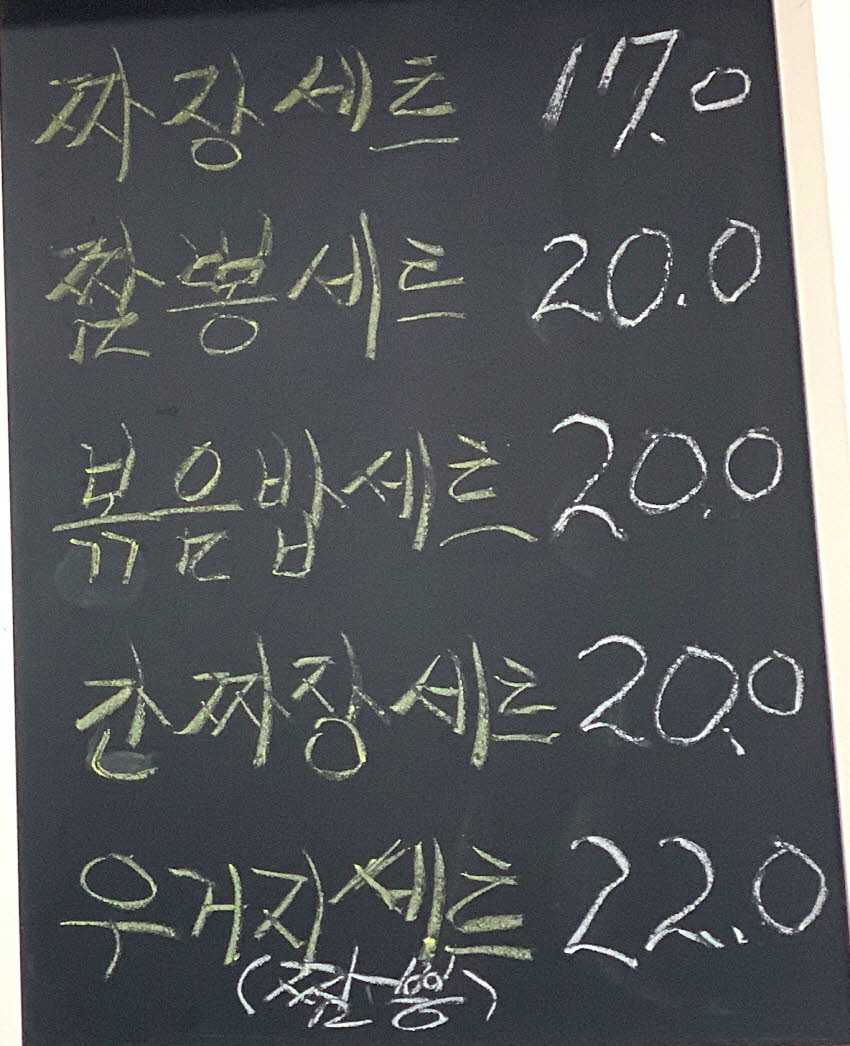 짜장세트 17.0
짬뽕세트 20.0
볶음밥세트 20.0
간짜장세트 20.0
우거지세트 22.0
(짬뽕)